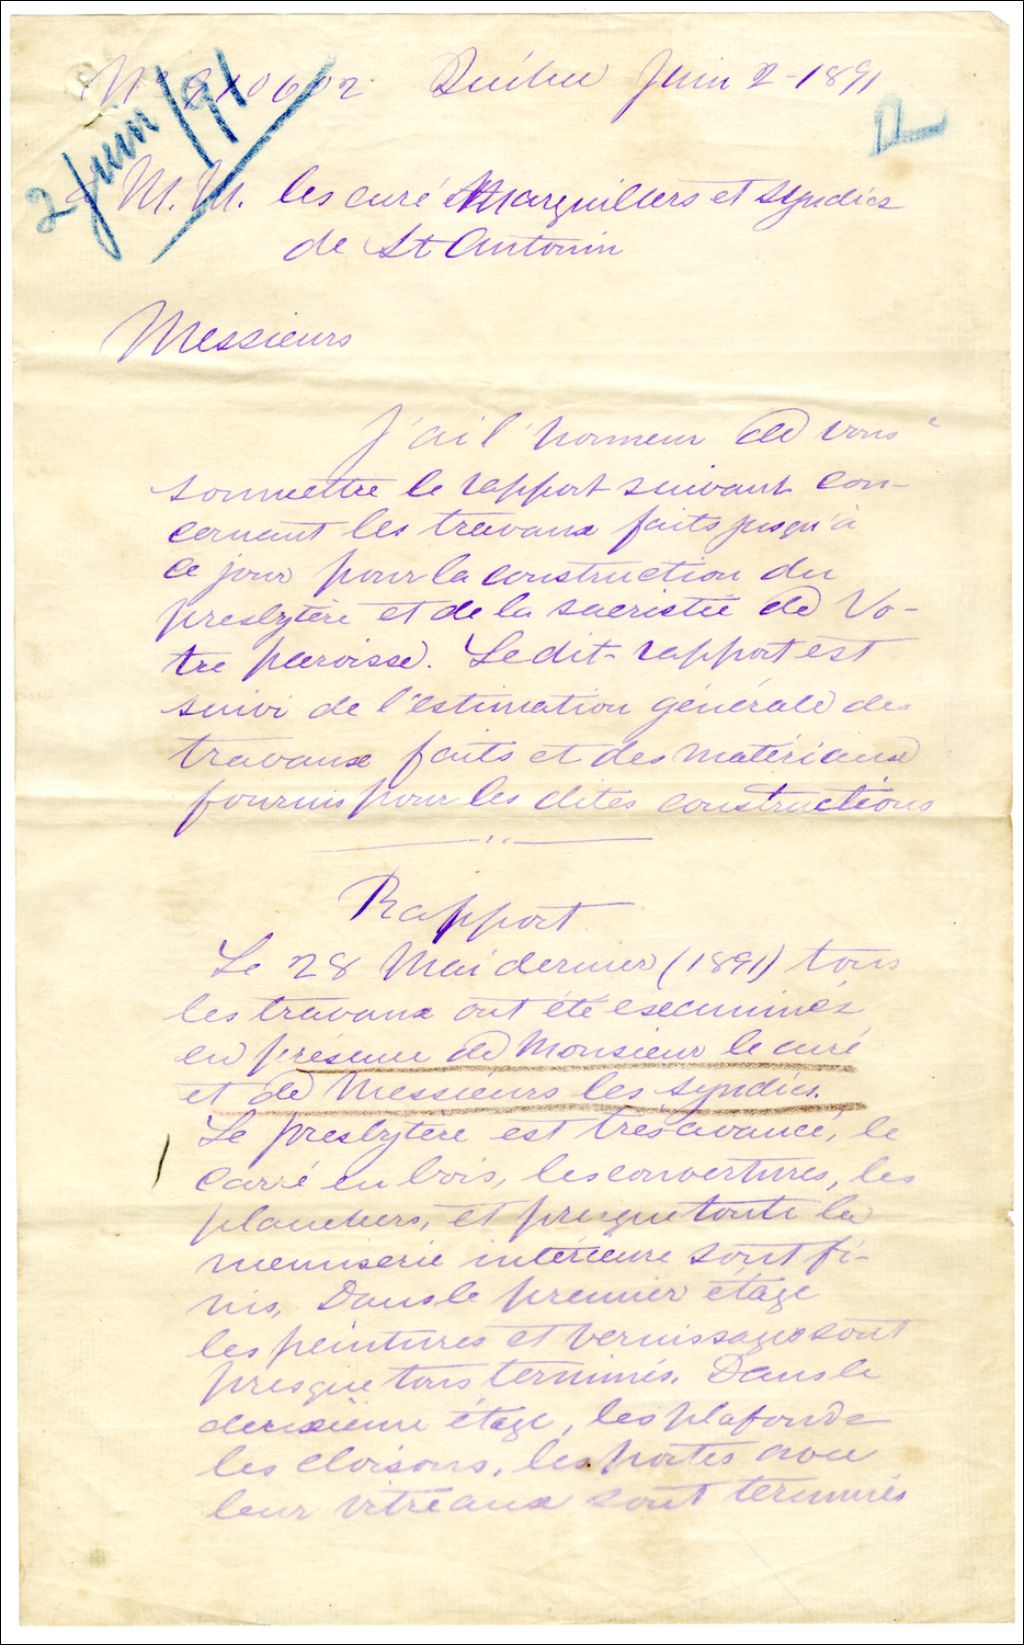 Nº 910602 Québec Juin 2 - 1891
2 Juin/91
M.M. les curé Marguilliers et syndics
de St Antonin
Messieurs
J'ai l'honneur de vous
soumettre le rapport suivant con-
cernant les travaux faits jusqu'à
ce jour pour la construction du
presbytère et de la sacristie de Vo-
tre paroisse. Ledit rapport est
suivi de l'estimation générale des
travaux faits et des matériaux
fournis pour les dites constructions
Rapport
Le 28 Mai dernier (1891) tous
les travaux ont été examinés
en présence de Monsieur le curé
et de Messieurs les syndics.
Le presbytère est très avancé, le
carré en bois, les couvertures, les
planchers, et presque toute la
menuiserie intérieure sont fi-
nis. Dans le premier étage
les peintures et vernissages sont
presque tous terminés. Dans le
deuxième étage, les plafonds
les cloisons, les portes avec
leur vitreaux sont terminés